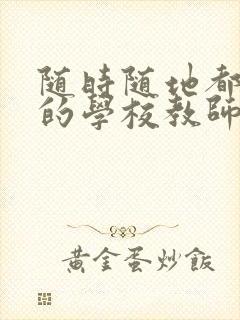 随時随地都
的學校教師
黃金蛋炒飯